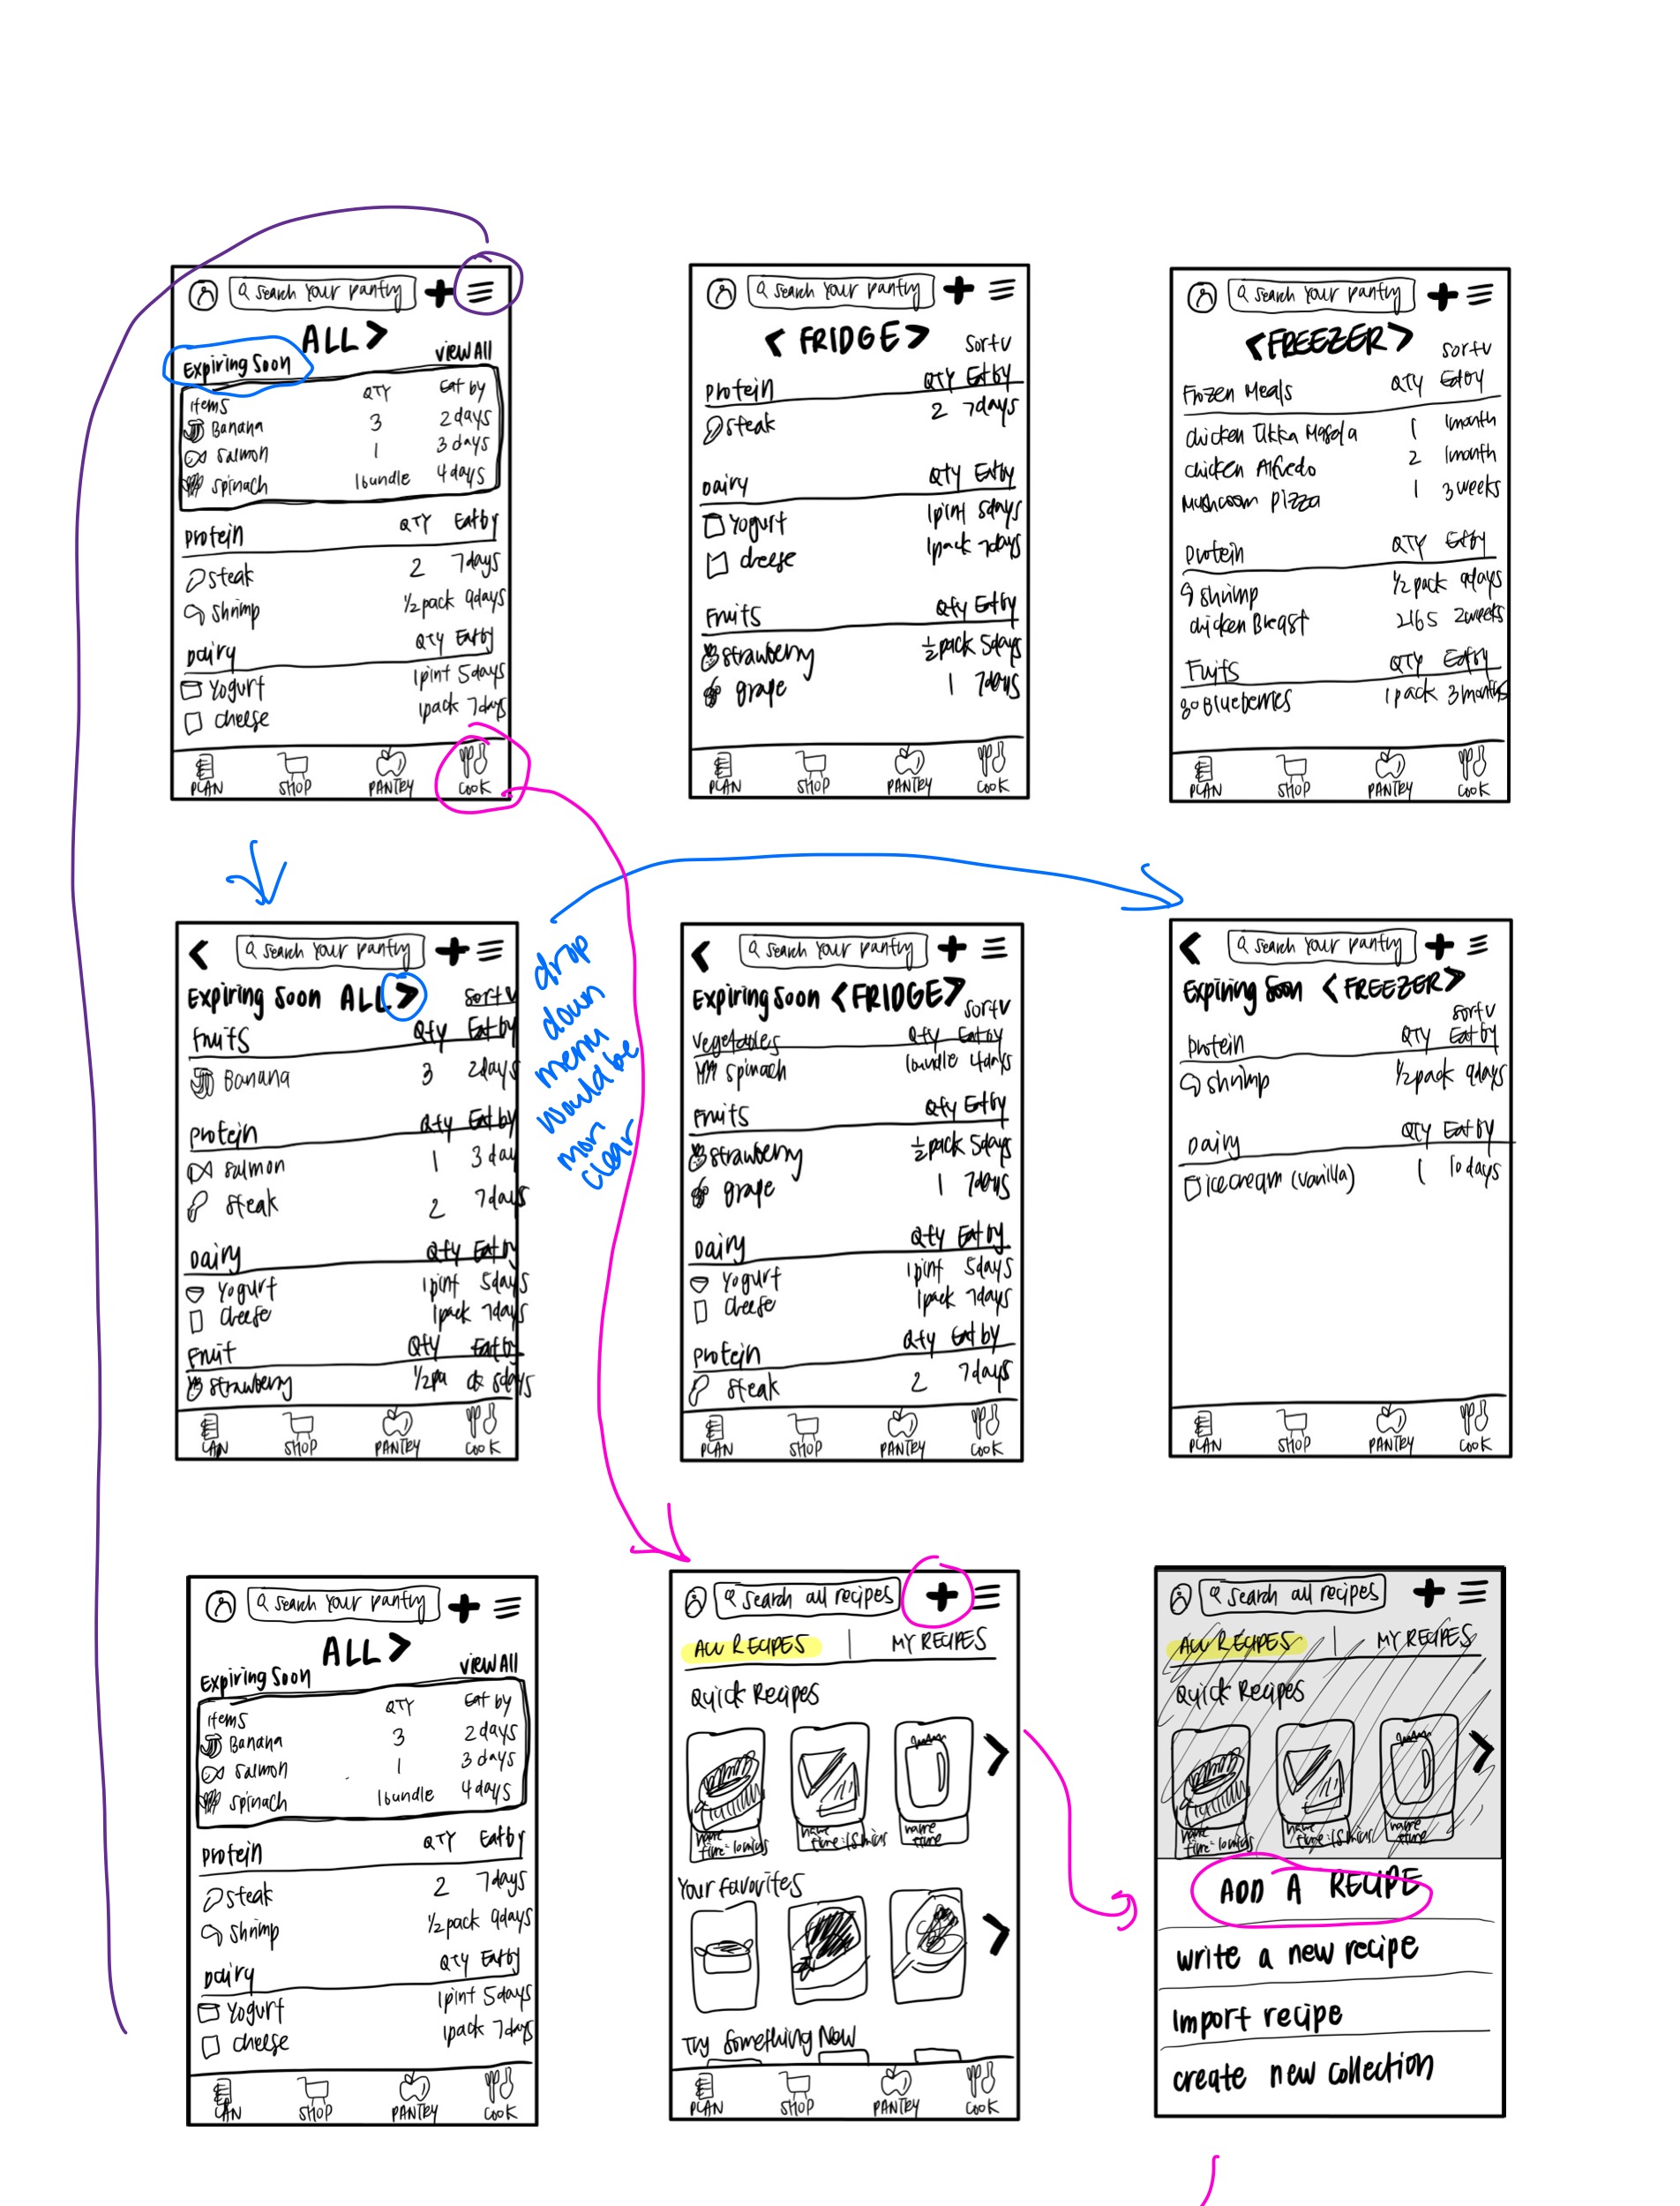 Search Your Pantry
ALL >
Expiring Soon
View All
Items QTY Eat by
Banana 3 2 days
Salmon 1 3 days
Spinach 1 bundle 4 days
Protein QTY Eat by
Steak 2 7 days
Shrimp 1/2 pack 9 days
Dairy QTY Eat by
Yogurt 1 pint 5 days
Cheese 1 pack 7 days
PLAN SHOP PANTRY COOK
Search Your Pantry
< FRIDGE >
Sort v
Protein QTY Eat by
Steak 2 7 days
Dairy QTY Eat by
Yogurt 1 pint 5 days
Cheese 1 pack 7 days
Fruits Qty Eat by
Strawberry 1/2 pack 5 days
grape 1 7 days
PLAN SHOP PANTRY COOK
Search Your Pantry
< FREEZER >
Sort v
Frozen Meals QTY Eat by
Chicken Tikka Masala 1 1 month
Chicken Alfredo 2 1 month
Mushroom Pizza 1 3 weeks
Protein QTY Eat by
Shrimp 1/2 pack 9 days
Chicken Breast 2 lbs 2 weeks
Fruits QTY Eat by
Blueberries 1 pack 3 months
PLAN SHOP PANTRY COOK
Search Your Pantry
Expiring Soon ALL > Sort v
Fruits Qty Eat by
Banana 3 2 days
Protein Qty Eat by
Salmon 1 3 day
Steak 2 7 days
Dairy Qty Eat by
Yogurt 1 pint 5 days
Cheese 1 pack 7 days
Fruit Qty Eat by
Strawberry 1/2 pa ck 5 days
SHOP PANTRY COOK
drop
down
menu
would be
mor
clear
Search Your Pantry
Expiring Soon < FRIDGE >
Sort v
Vegetables Qty Eat by
Spinach 1 bundle 4 days
Fruits Qty Eat by
Strawberry 1/2 pack 5 days
grape 1 7 days
Dairy Qty Eat by
Yogurt 1 pint 5 days
Cheese 1 pack 7 days
Protein Qty Eat by
Steak 2 7 days
PLAN SHOP PANTRY COOK
Search Your Pantry
Expiring Soon < FREEZER >
Sort v
Protein QTY Eat by
Shrimp 1/2 pack 9 days
Dairy QTY Eat by
ice cream (vanilla) 1 10 days
PLAN SHOP PANTRY COOK
Search Your Pantry
ALL >
Expiring Soon
View All
Items QTY Eat by
Banana 3 2 days
Salmon 1 3 days
Spinach 1 bundle 4 days
Protein QTY Eat by
Steak 2 7 days
Shrimp 1/2 pack 9 days
Dairy QTY Eat by
Yogurt 1 pint 5 days
Cheese 1 pack 7 days
SHOP PANTRY COOK
Search all recipes
ALL RECIPES | MY RECIPES
Quick Recipes
name
time: 10 mins
name
time: 15 mins
name
time
Your favorites
Try Something New
PLAN SHOP PANTRY COOK
Search all recipes
ALL RECIPES | MY RECIPES
Quick Recipes
name
time: 10 mins
name
time: 15 mins
name
time
ADD A RECIPE
Write a new recipe
Import recipe
Create new collection